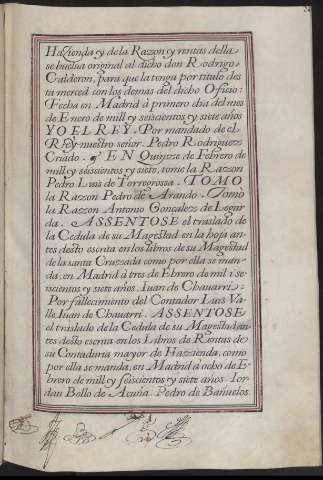 Hazienda y de la Razon y rentas della
se buelua original al dicho don Rodrigo
Calderon, para que la tenga por titulo des
ta merced con los demas del dicho Oficio:
Fecha en Madrid à primero dia del mes
de Enero de mill y seiscientos y siete años
YO EL REY. Por mandado de el
Rey nuestro señor. Pedro Rodriguez
Criado. Y EN Quinze de Febrero de
mill y seiscientos y siete, tomo la Razon
Pedro Luis de Torregrossa. TOMO
la Razon Pedro de Arando. Tomo
la Razon Antonio Gonçalez de Legar
da. ASSENTOSE el traslado de
la Cedula de su Magestad en la hoja an
tes desto escrita en los libros de su Magestad
de la santa Cruzada como por ella se man
da. en Madrid à tres de Ebrero de mil i se
iscientos y siete años. Iuan de Chauarri:
Por fallecimiento del Contador Luis Va
lle Iuan de Chauarri. ASSENTOSE
el traslado de la Cedula de su Magestad an
tes desto escrita en los Libros de Rentas de
su Contaduria mayor de Hazienda, como
por ella se manda, en Madrid à ocho de E
brero de mill y seiscientos y siete años Ior
dan Bello de Acuña. Pedro de Bañuelos